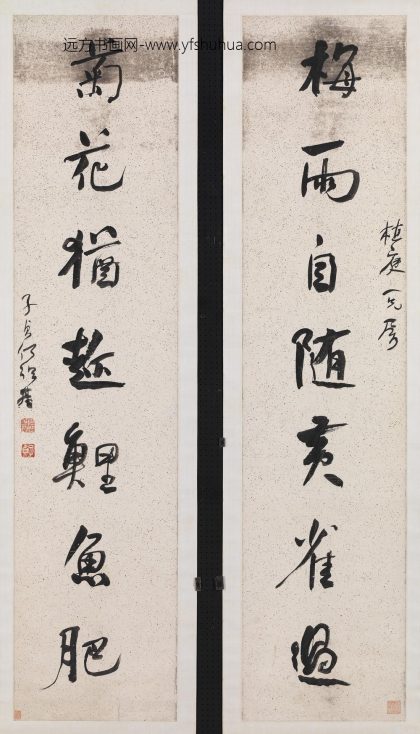 远方书画网-www.yfshuhua.com
植庭一兄属
梅雨自随黄雀過
菊花猶趁鯉魚肥
子貞何紹基